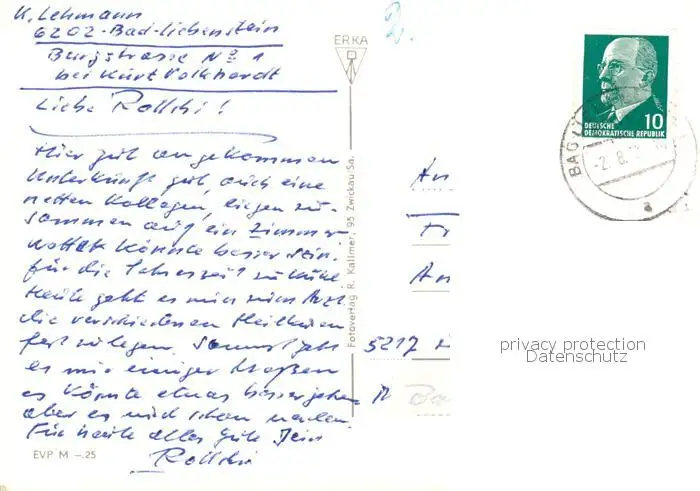 K. Lehmann
6202-Bad-Liebenstein
Burgstrasse No 1
bei Kurt Volkhardt
Liebe Rollchi!
Hier gut angekommen
Unterkunft gut, auch eine
netten Kollegen, liegen zu-
sammen auf ein Zimmer
könnte besser sein.
für die Jahreszeit zu kühl.
Heute geht es mir zum Arzt
die verschiedenen Heilkuren
fest zulegen. Sonst geht
es mir einiger Maßen
es könnte etwas besser gehen
aber es wird schon werden.
Für heute alles Gute Dein
Rollchi
EVP M -.25
ERKA
Fotoverlag R. Kallmer, 95 Zwickau/Sa.
2.
10
DEUTSCHE
DEMOKRATISCHE REPUBLIK
BAD
-2.8.
a
An
Fr
An
5217
privacy protection
Datenschutz